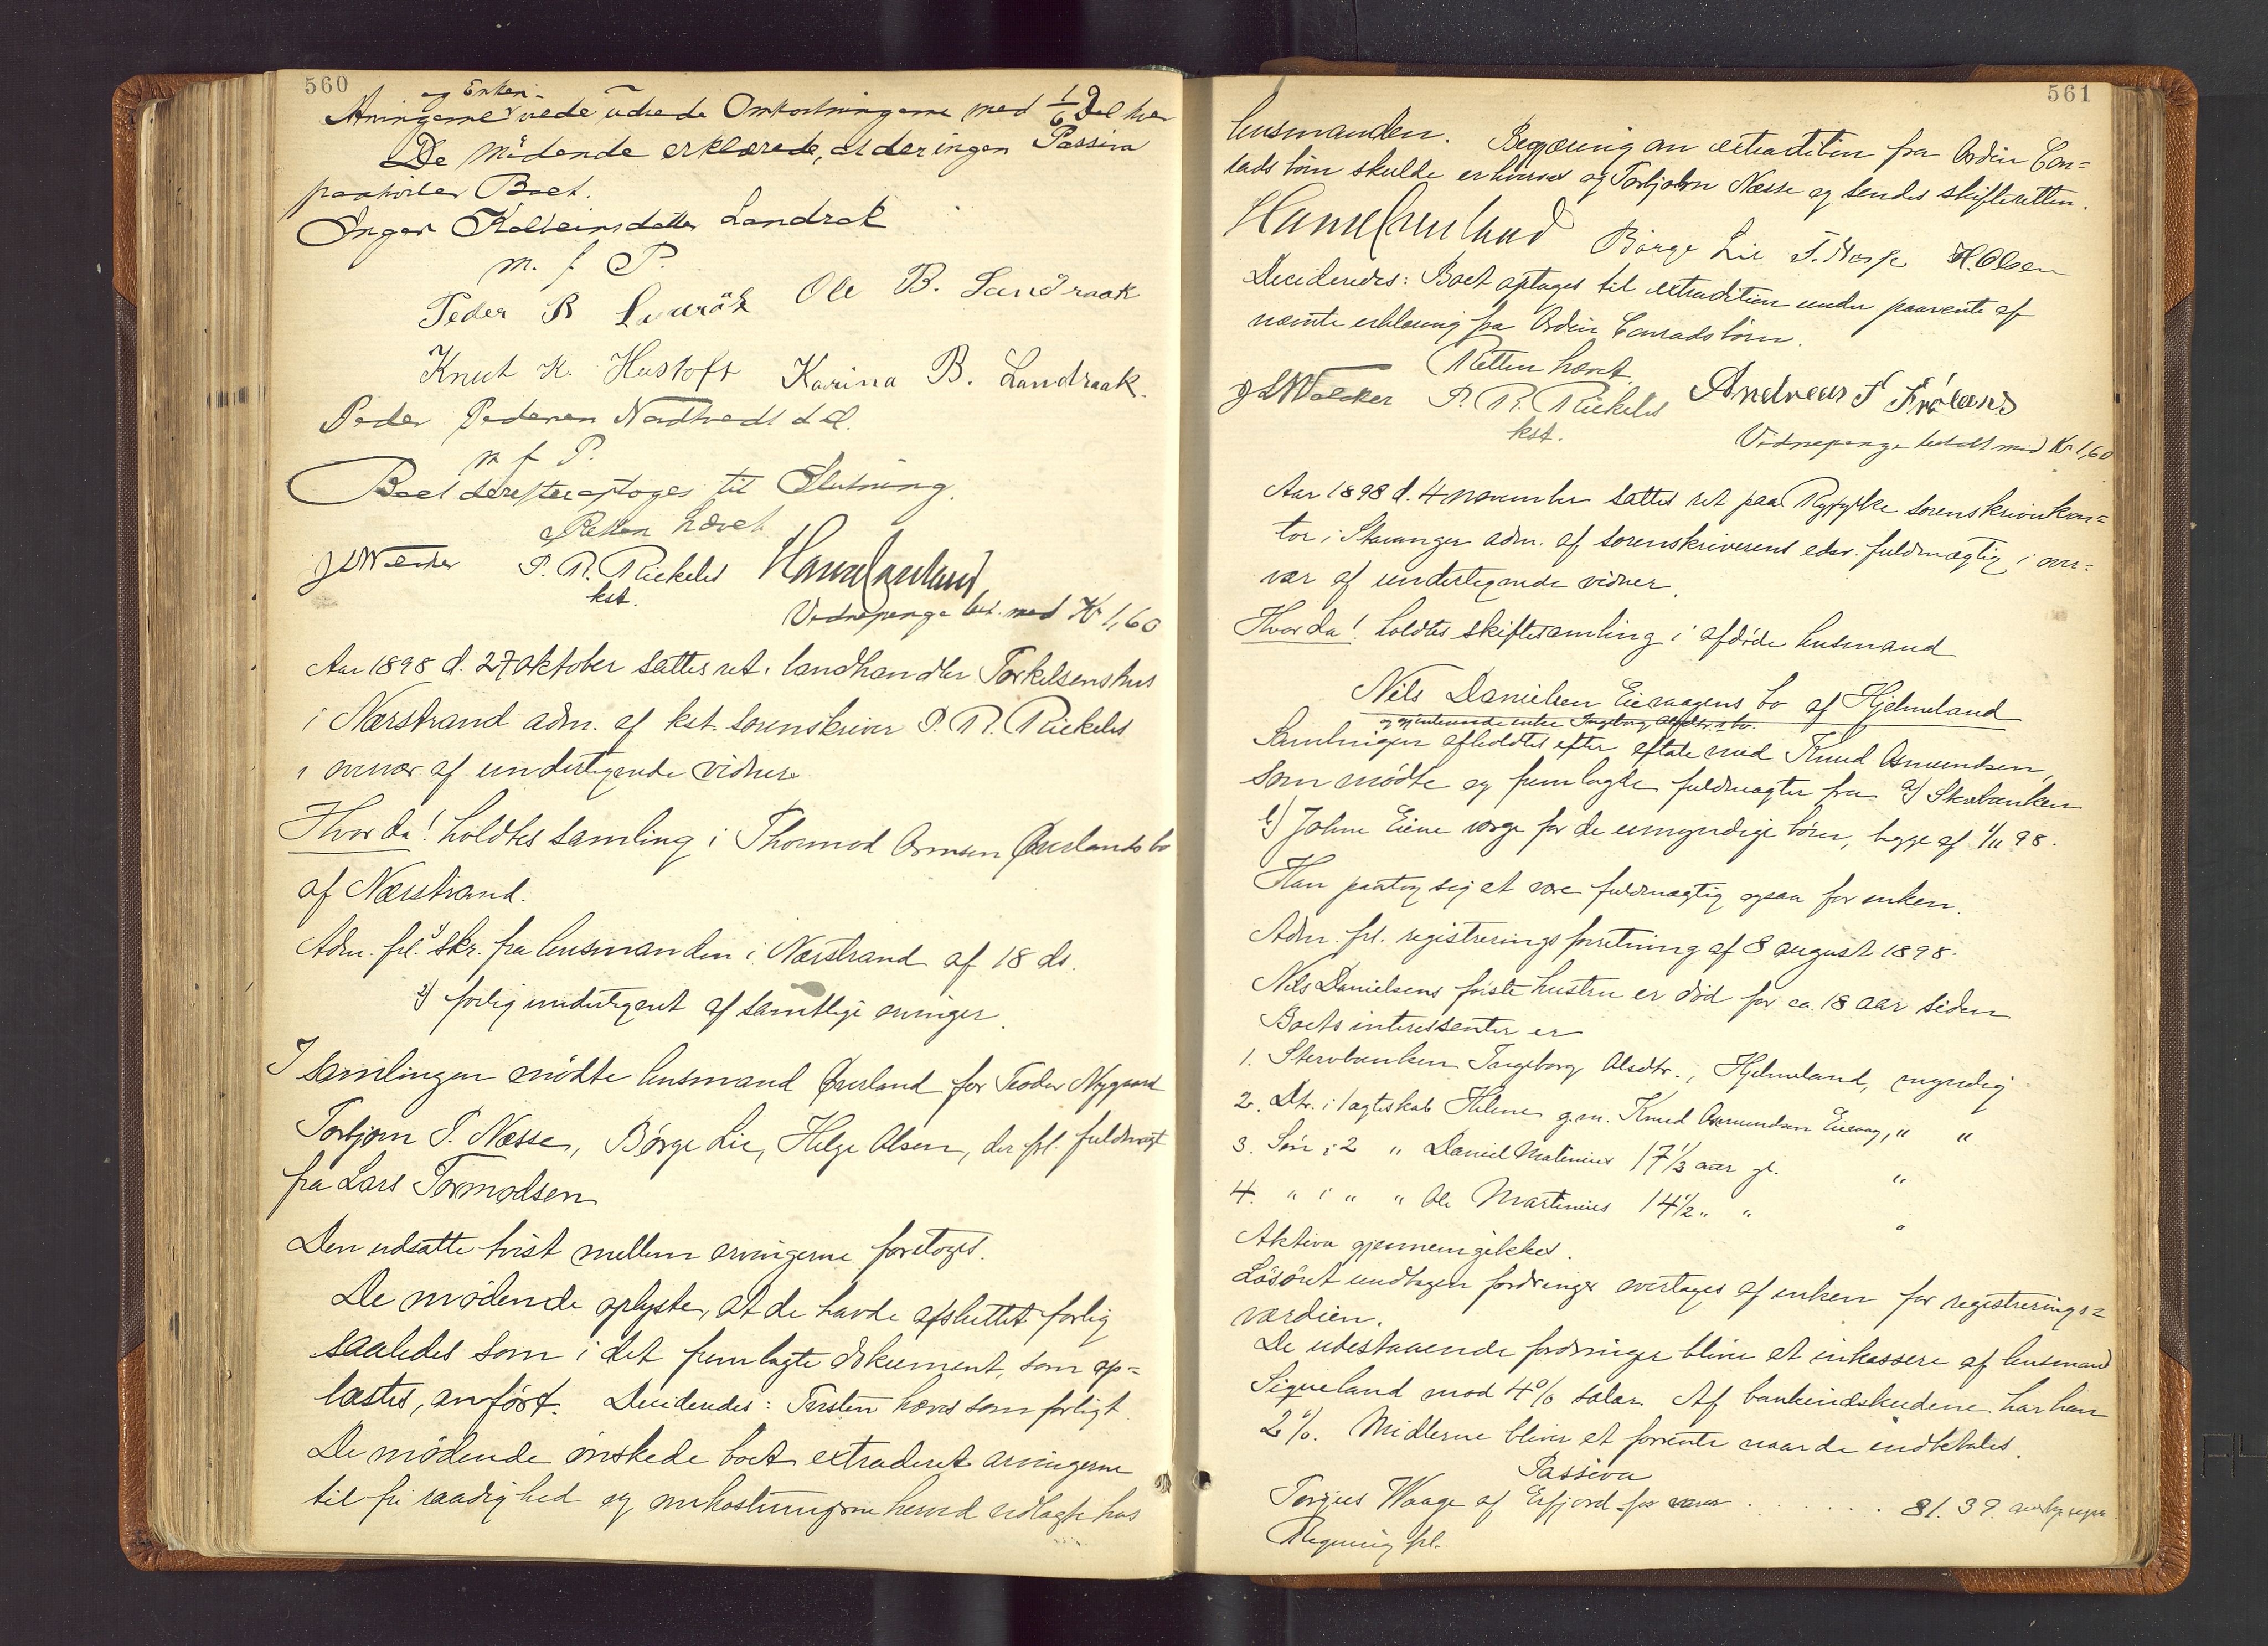 560
og Enken
Arvingerne vede udrede Omkostningerne med 1/6 Del hver
De Mödende erklærede, at der ingen Passiva
paahviler Boet.
Inger Kolbeinsdatter Landrak
m. f P.
Peder B Ole B. Landraak
Knut K. Hustoft Karina B. Landraak.
Peder Pedersen Nordtvedt
m f P.
Boet derefter optoges til Slutning.
Retten hævet
P. R. Rickeles
kst.
Vidnepenge bet. med Kr 1,60
Aar 1898 d. 27 oktober sattes ret i landhandler Torkelsens hus
i Nærstrand adm. af kst. sorenskriver P. R. Rickeles
i overvær af undertegnede vidner
Hvor da! holdtes samling i Thormod Ormsen Øverlands bo
af Nærstrand.
Adm. frl. 1) skr. fra lensmanden i Nærstrand af 18 ds.
2) forlig undertegnet af samtlige arvinger.
I samlingen mödte lensmand Øverland for Teodor Nygaard
Torbjørn P. Næsse, Børge Lie, Helge Olsen, der frl. fuldmagt
fra Lars Tormodsen
Den udsatte tvist mellem arvingerne foretoges.
De mødende oplyste, at de havde afsluttet forlig
saaledes som i det fremlagte dokument, som op=
læstes, anfört. Decideredes: Tvisten hæves som forligt.
De mødende ønskede boet extraderet arvingerne
til fri raadighed og omkostningerne herved udlagte hos
561
lensmanden. Begjæring om extradition fra Ordin Con=
radsbörn skulde erhverves af Torbjørn Næsse og sendes skifteretten.
Börge Lie T. Næsse H. Olsen
Decideredes: Boet optages til extradition under paavente af
nævnte erklæring fra Ordin Conradsbörn.
Retten hævet.
P. R. Rickeles Andreas
kst.
Vidnepenge betalt med Kr 1,60
Aar 1898 d. 4 november sattes ret paa Ryfylke sorenskriverkon=
tor i Stavanger adm. af sorenskriverens edsv. fuldmægtig i over=
vær af undertegnede vidner.
Hvor da! holdtes skiftesamling i afdöde husmand
Nils Danielsen Eievaagens bo af Hjelmeland
og gjenlevende enke Ingeborg Olsdtr.s bo.
Samlingen afholdtes efter aftale med Knud Asmundsen,
som mödte og fremlagde fuldmagter fra a) Skabanken
b) Johne Eiene værge for de umyndige börn, begge af 1/11 98.
Han paatog sig at være fuldmægtig ogsaa for enken.
Adm. frl. registreringsforretning af 8 august 1898.
Nils Danielsens förste hustru er död for ca. 18 aar siden
Boets interessenter er
1. Stervboenken Ingeborg Olsdtr., Hjelmeland, myndig
2. Dtr. i 1 ægteskab Helene g.m. Knud Asmundsen Eievaag, " "
3. Sön i 2 " Daniel Matinius 17 1/3 aar gl. "
4. " i " " Ole Martinius 14 1/2 " " "
Aktiva gjennemgikkes.
Lösöret undtagen fordringer overtages af enken for registrerings=
værdien.
De udestaaende fordringer bliver at inkassere af lensmand
Sigveland mod 4% salær. Af bankindskudene har han
2%. Midlerne bliver at forrente naar de indbetales.
Passiva
Torgius Waage af Erfjord for varer . . . . . . 81.39
Regning frl.